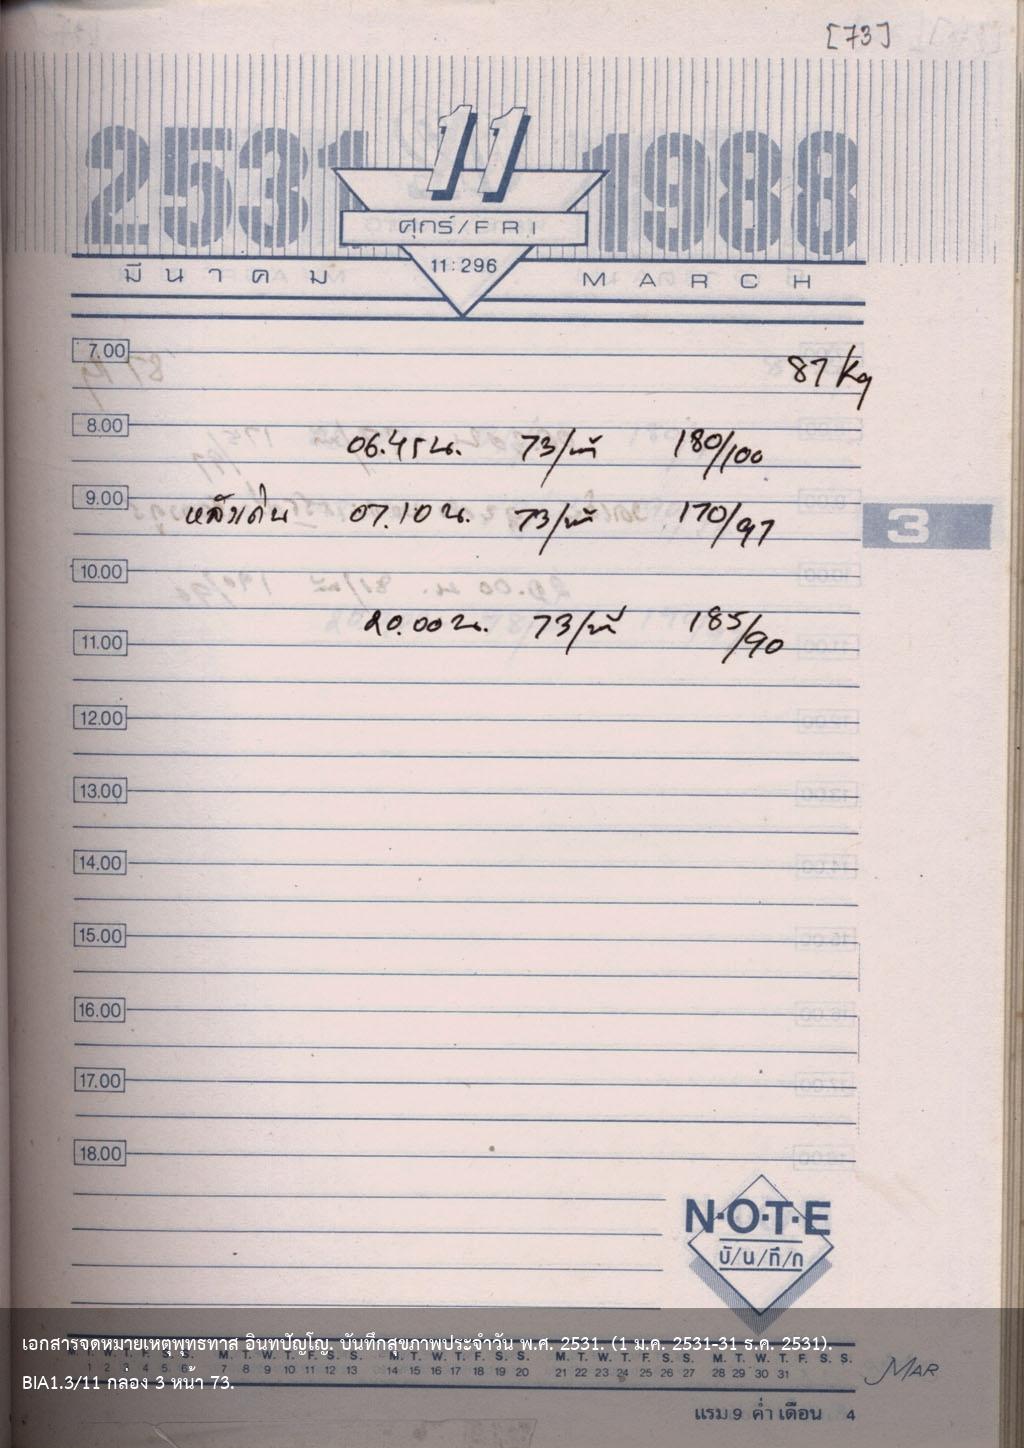 [73]
2531 11 1988
ศุกร์/FRI
11:296
มีนาคม MARCH
7.00
87 Kg
8.00
06.45 น. 73/นาที 180/100
9.00
หลังเดิน 07.10 น. 73/นาที 170/97
3
10.00
20.00 น. 73/นาที 185/90
11.00
12.00
13.00
14.00
15.00
16.00
17.00
18.00
N·O·T·E
บั/น/ทึ/ก
เอกสารจดหมายเหตุพุทธทาส อินทปัญโญ. บันทึกสุขภาพประจำวัน พ.ศ. 2531. (1 ม.ค. 2531-31 ธ.ค. 2531).
M. T. W. T. F. S. S. M. T. W. T. F. S. S. M. T. W. T. F. S. S. M. T. W. T. F. S. S. M. T. W. T. F. S. S.
1 2 3 4 5 6 7 8 9 10 11 12 13 14 15 16 17 18 19 20 21 22 23 24 25 26 27 28 29 30 31
MAR
BIA1.3/11 กล่อง 3 หน้า 73.
แรม 9 ค่ำ เดือน 4